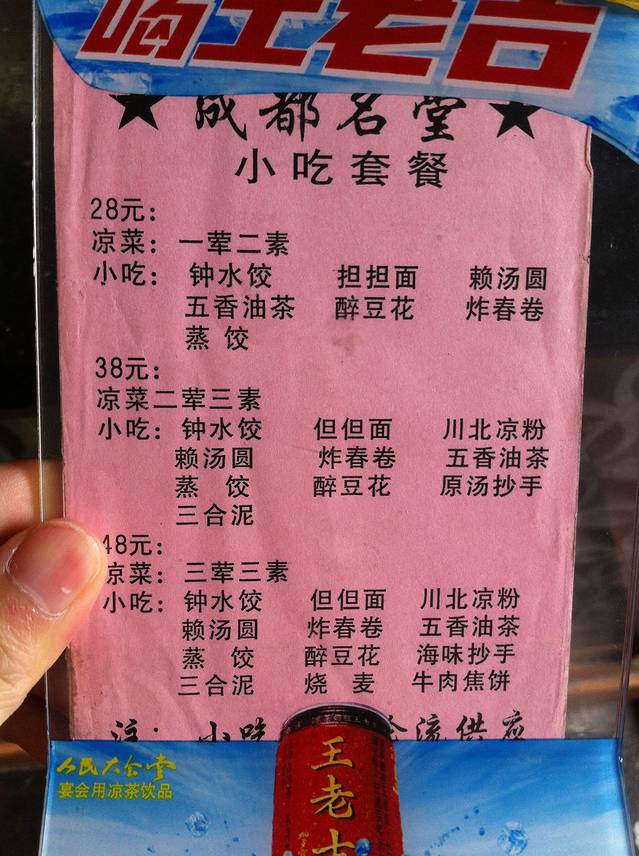 喝王老吉
★ 成都名堂 ★
小吃套餐
28元:
凉菜: 一荤二素
小吃: 钟水饺 担担面 赖汤圆
五香油茶 醉豆花 炸春卷
蒸饺
38元:
凉菜二荤三素
小吃: 钟水饺 但但面 川北凉粉
赖汤圆 炸春卷 五香油茶
蒸饺 醉豆花 原汤抄手
三合泥
48元:
凉菜: 三荤三素
小吃: 钟水饺 但但面 川北凉粉
赖汤圆 炸春卷 五香油茶
蒸饺 醉豆花 海味抄手
三合泥 烧麦 牛肉焦饼
注: 小吃 流供应
人民大会堂
宴会用凉茶饮品
王老吉